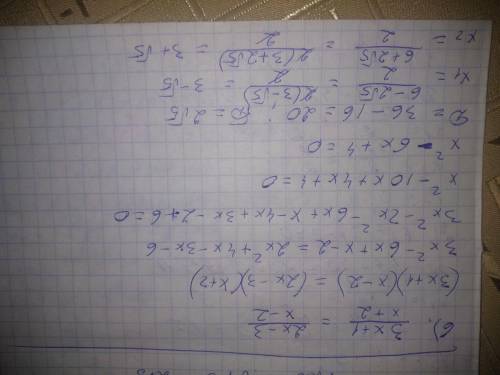 б). (3x+1)/(x+2) = (2x-3)/(x-2)
(3x+1)(x-2) = (2x-3)(x+2)
3x²-6x+x-2=2x²+4x-3x-6
3x²-2x²-6x+x-4x+3x-2+6=0
x²-10x+4x+4=0
x²-6x+4=0
D=36-16=20; √D=2√5
x₁ = (6-2√5)/2 = 2(3-√5)/2 = 3-√5
x₂ = (6+2√5)/2 = 2(3+2√5)/2 = 3+√5